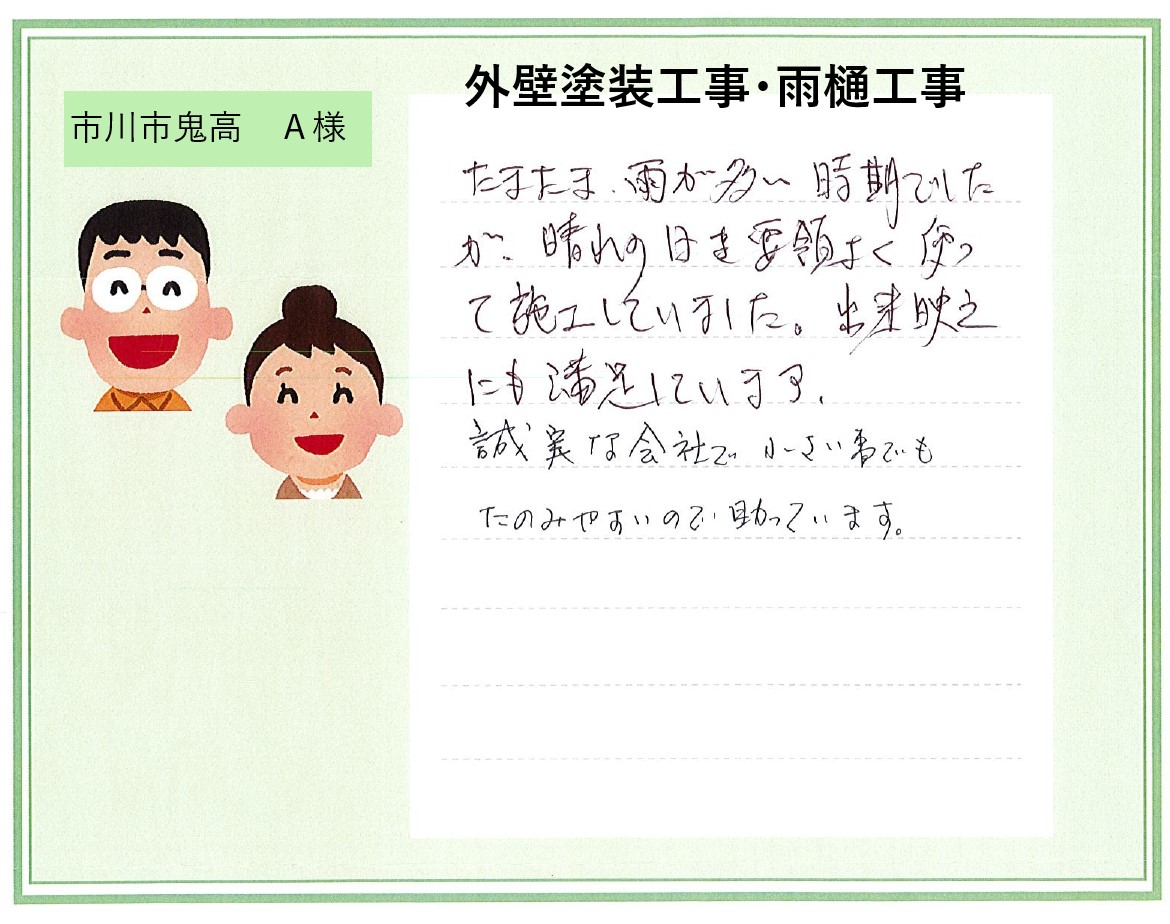 外壁塗装工事・雨樋工事
市川市鬼高　A様
たまたま、雨が多い時期でした
が、晴れの日を要領よく使っ
て施工していました。出来映え
にも満足しています。
誠実な会社で小さい事でも
たのみやすいので助っています。